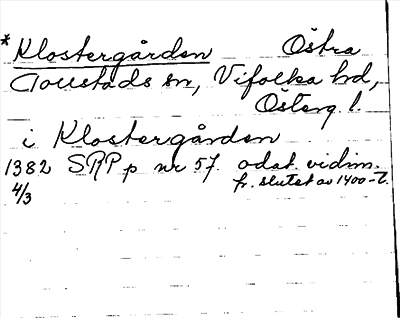 *Klostergården Östra
Tollstads sn, Vifolka hd,
Österg. l.
i Klostergården
1382 SRP p nr 57. odat. vidim.
4/3 fr. slutet av 1400-t.